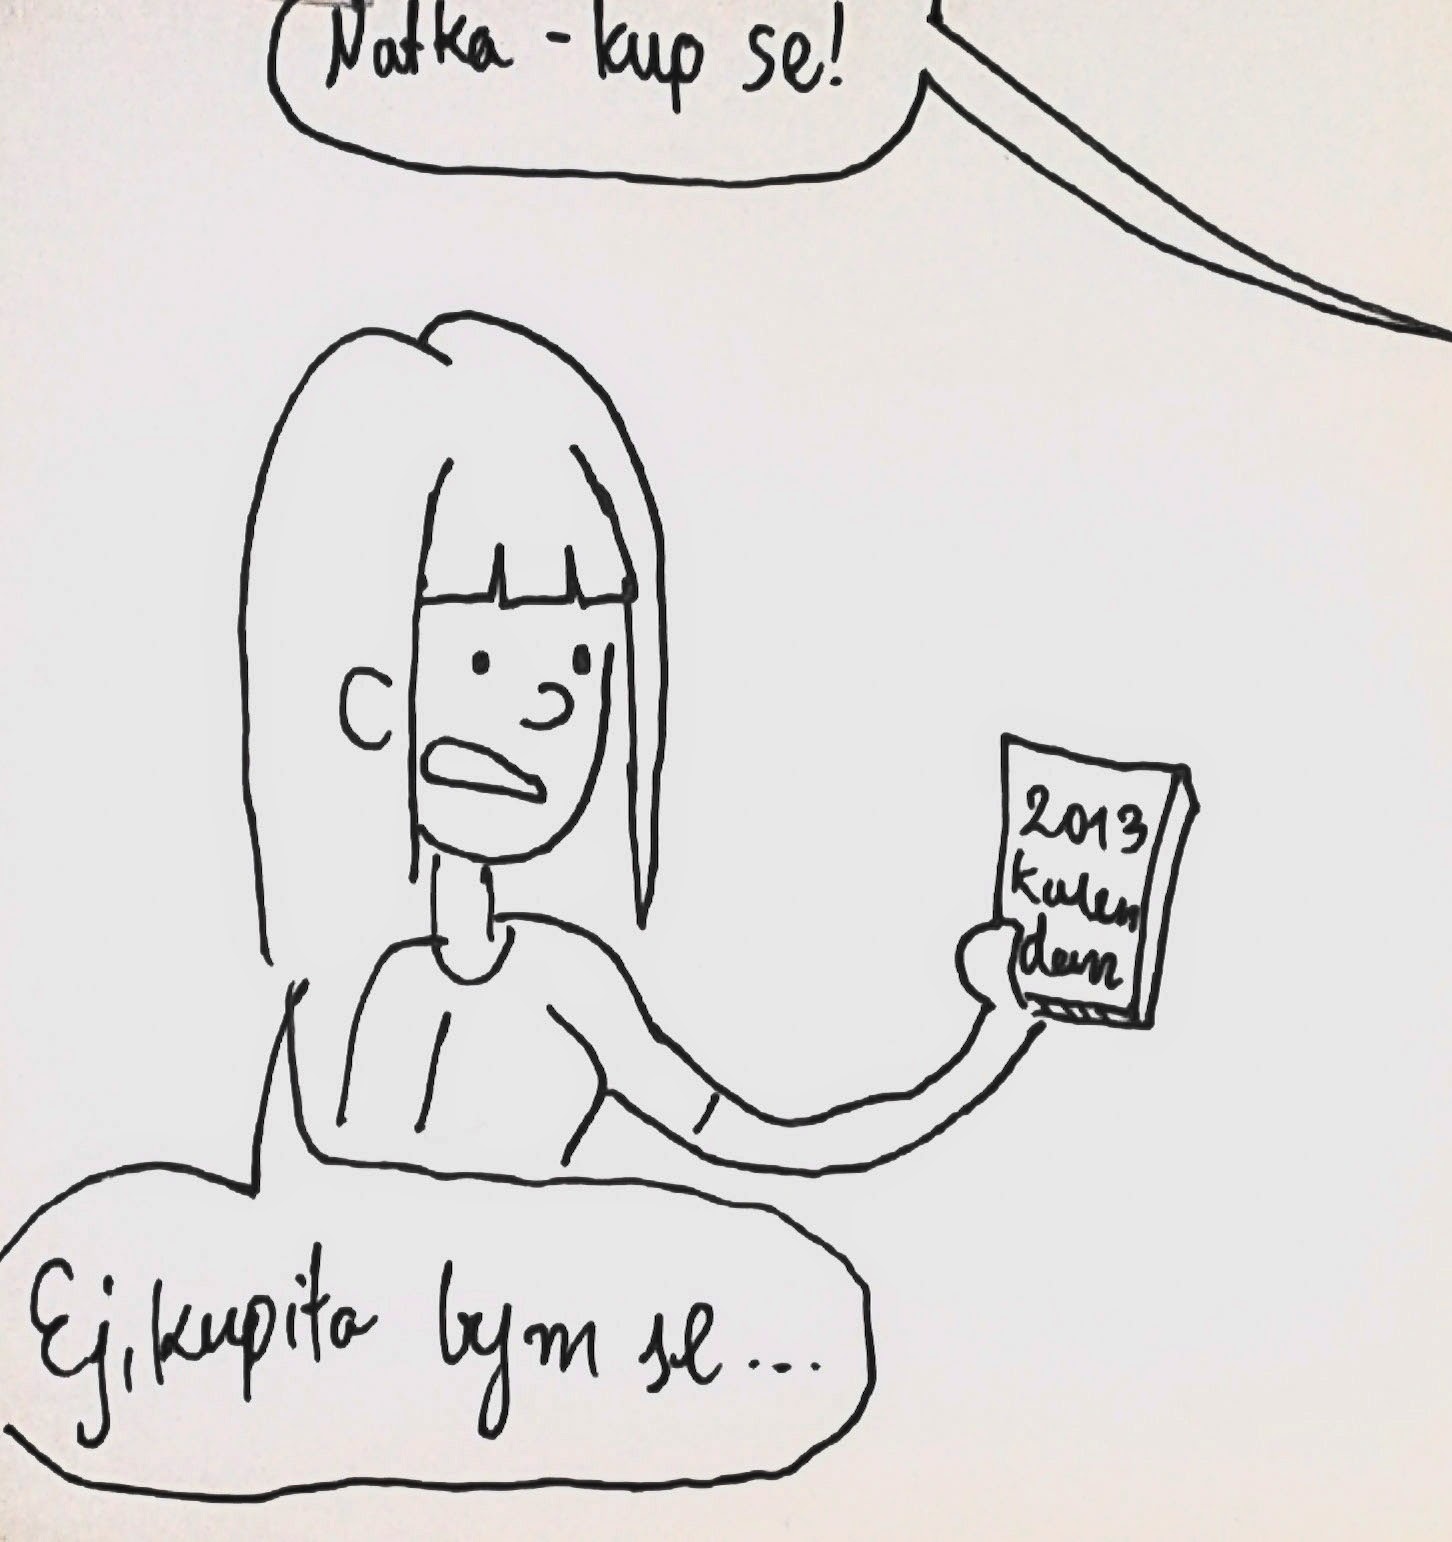 Natka - kup se!
2013
kalen
darz
Ej, kupiła bym se...